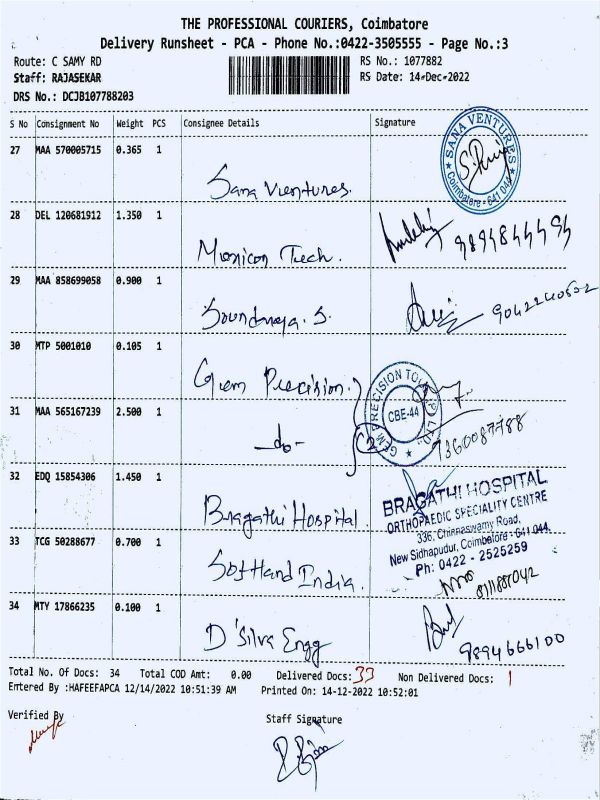 THE PROFESSIONAL COURIERS, Coimbatore
Delivery Runsheet - PCA - Phone No.:0422-3505555 - Page No.:3
Route: C SAMY RD
RS No.: 1077882
Staff: RAJASEKAR
RS Date: 14-Dec-2022
DRS No.: DCJB107788203
S No Consignment No Weight PCS Consignee Details Signature
27 MAA 570005715 0.365 1
Sana Ventures.
SANA VENTURES
Coimbatore - 641 044
28 DEL 120681912 1.350 1
Tech.
29 MAA 858699058 0.900 1
Soundraya. S.
9042240652
30 MTP 5001010 0.105 1
Gem Precision.
GEM PRECISION TOOLS (P) LTD.
CBE-44
31 MAA 565167239 2.500 1
-do-
C2
7360087788
32 EDQ 15854306 1.450 1
Bragathi Hospital.
BRAGATHI HOSPITAL
ORTHOPAEDIC SPECIALITY CENTRE
336, Chinnaswamy Road,
New Sidhapudur, Coimbatore - 641 044.
Ph: 0422 - 2525259
33 TCG 50288677 0.700 1
SoftHand India.
34 MTY 17866235 0.100 1
D'Silva Engg
9894666100
Total No. Of Docs: 34 Total COD Amt: 0.00 Delivered Docs: 33 Non Delivered Docs: 1
Entered By :HAFEEFAPCA 12/14/2022 10:51:39 AM Printed On: 14-12-2022 10:52:01
Verified By
Staff Signature